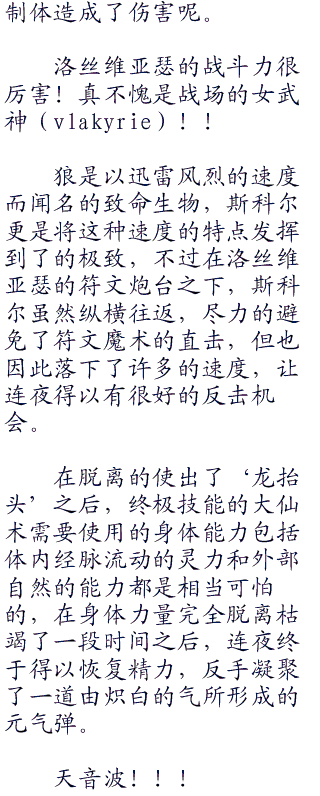 制体造成了伤害呢。
洛丝维亚瑟的战斗力很
厉害！真不愧是战场的女武
神（vlakyrie）！！
狼是以迅雷风烈的速度
而闻名的致命生物，斯科尔
更是将这种速度的特点发挥
到了的极致，不过在洛丝维
亚瑟的符文炮台之下，斯科
尔虽然纵横往返，尽力的避
免了符文魔术的直击，但也
因此落下了许多的速度，让
连夜得以有很好的反击机
会。
在脱离的使出了‘龙抬
头’之后，终极技能的大仙
术需要使用的身体能力包括
体内经脉流动的灵力和外部
自然的能力都是相当可怕
的，在身体力量完全脱离枯
竭了一段时间之后，连夜终
于得以恢复精力，反手凝聚
了一道由炽白的气所形成的
元气弹。
天音波！！！